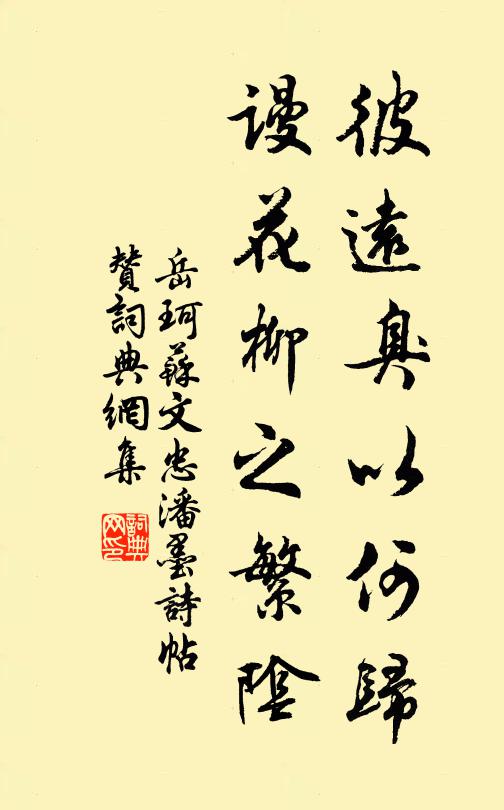 彼遠奧以何歸
謾花柳之繁陰
岳珂蘇文忠潘墨詩帖
贊詞典網集
詞典
网印